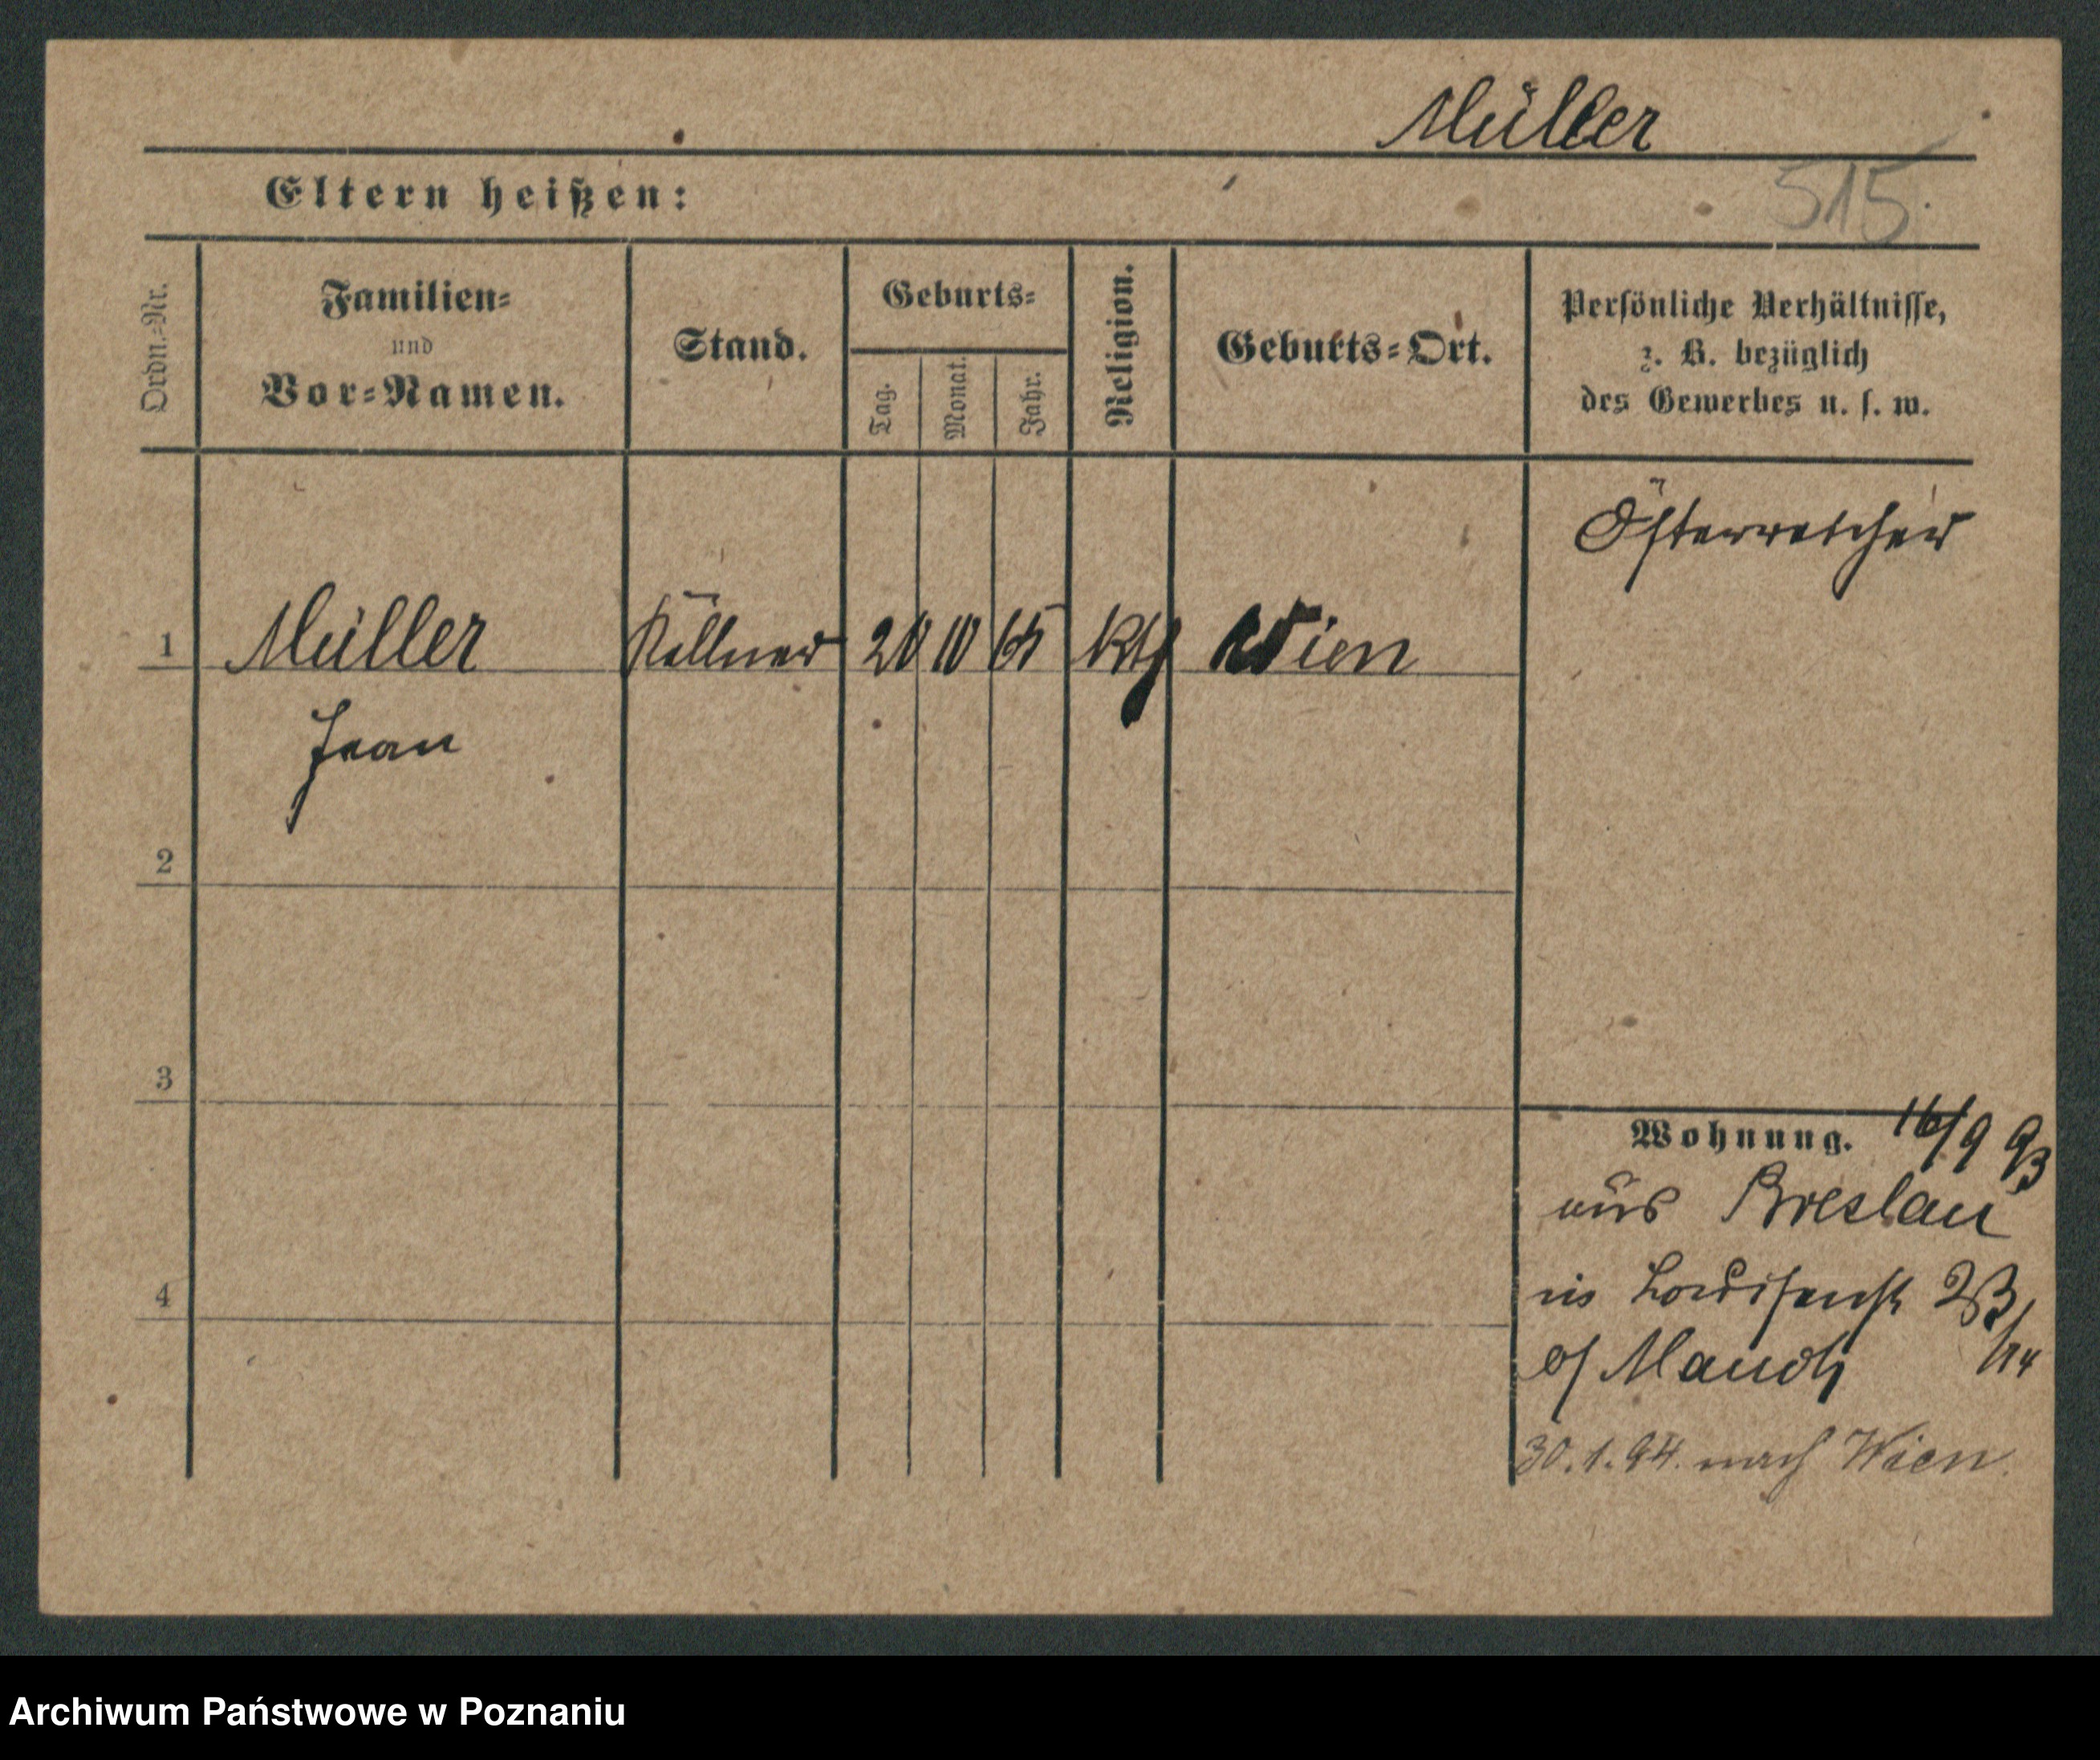 Müller
Eltern heißen:
515.
Ordn.-Nr.
Familien-
und
Vor-Namen.
Stand.
Geburts-
Tag.
Monat.
Jahr.
Religion.
Geburts-Ort.
Persönliche Verhältnisse,
z. B. bezüglich
des Gewerbes u. s. w.
Österreicher
1 Müller Kellner 20 10 65 kth Wien
Jean
2
3
Wohnung. 16/9 93
aus Breslau
in Louisenst
4
30.1.94. nach Wien.
Archiwum Państwowe w Poznaniu